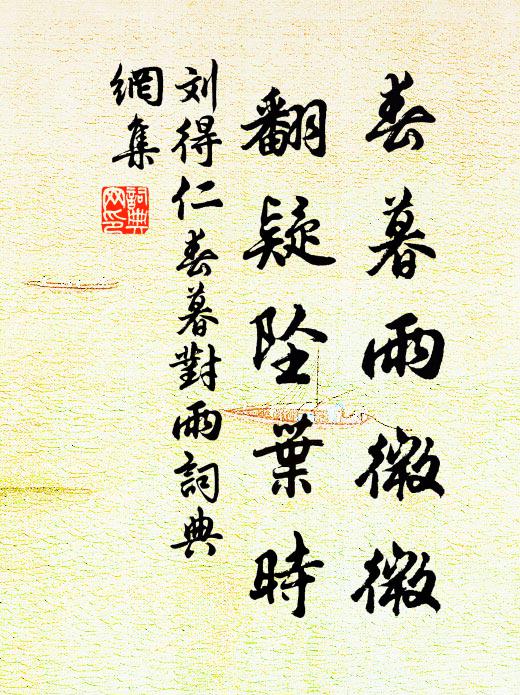 春暮雨微微
翻疑坠葉時
刘得仁春暮對雨詞典
網集
詞典
网印